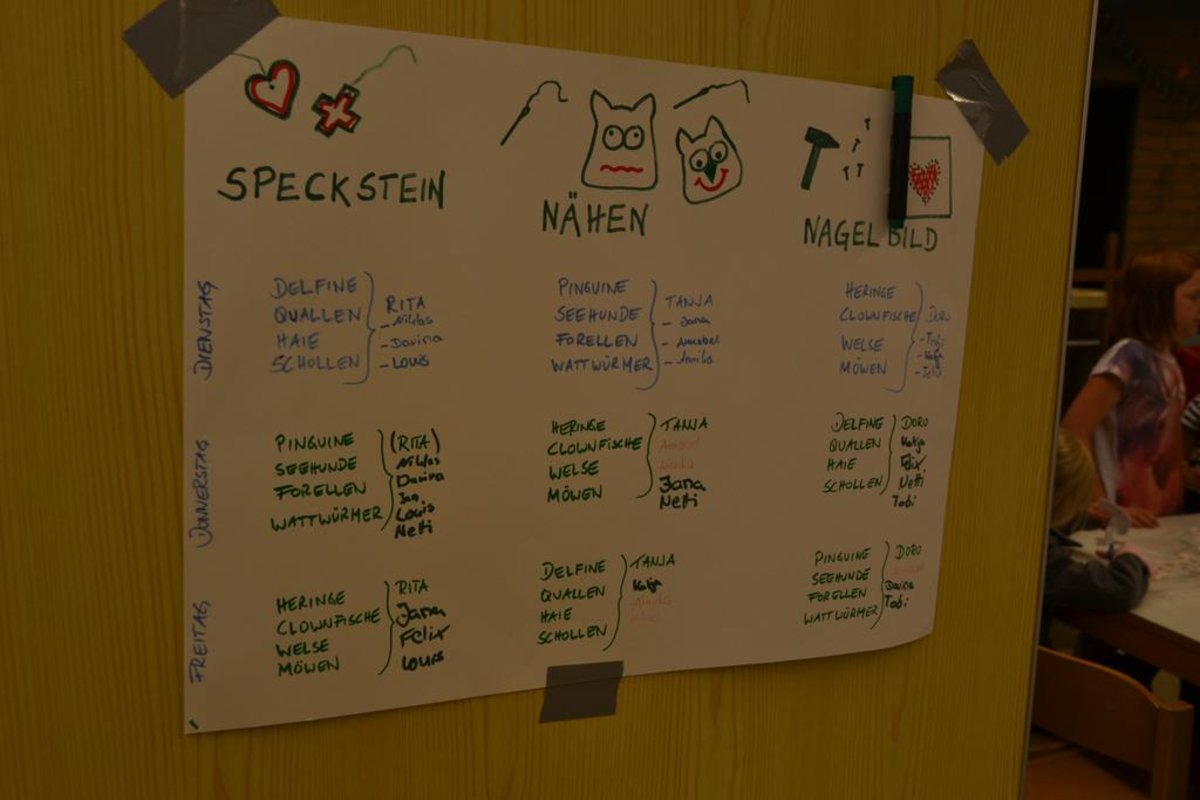 SPECKSTEIN
NÄHEN
NAGELBILD
DIENSTAG
DELFINE
QUALLEN
HAIE
SCHOLLEN
RITA
- Niklas
- Davina
- Louis
PINGUINE
SEEHUNDE
FORELLEN
WATTWÜRMER
TANJA
- Jana
- Annabel
- Annika
HERINGE
CLOWNFISCHE
WELSE
MÖWEN
DORO
- Tobi
- Katja
- Felix
DONNERSTAG
PINGUINE
SEEHUNDE
FORELLEN
WATTWÜRMER
(RITA)
Niklas
Davina
Louis
Netti
HERINGE
CLOWNFISCHE
WELSE
MÖWEN
TANJA
Annika
Jana
Netti
DELFINE
QUALLEN
HAIE
SCHOLLEN
DORO
Katja
Felix
Netti
Tobi
FREITAG
HERINGE
CLOWNFISCHE
WELSE
MÖWEN
RITA
Jana
Felix
Louis
DELFINE
QUALLEN
HAIE
SCHOLLEN
TANJA
Katja
Annika
PINGUINE
SEEHUNDE
FORELLEN
WATTWÜRMER
DORO
Davina
Tobi